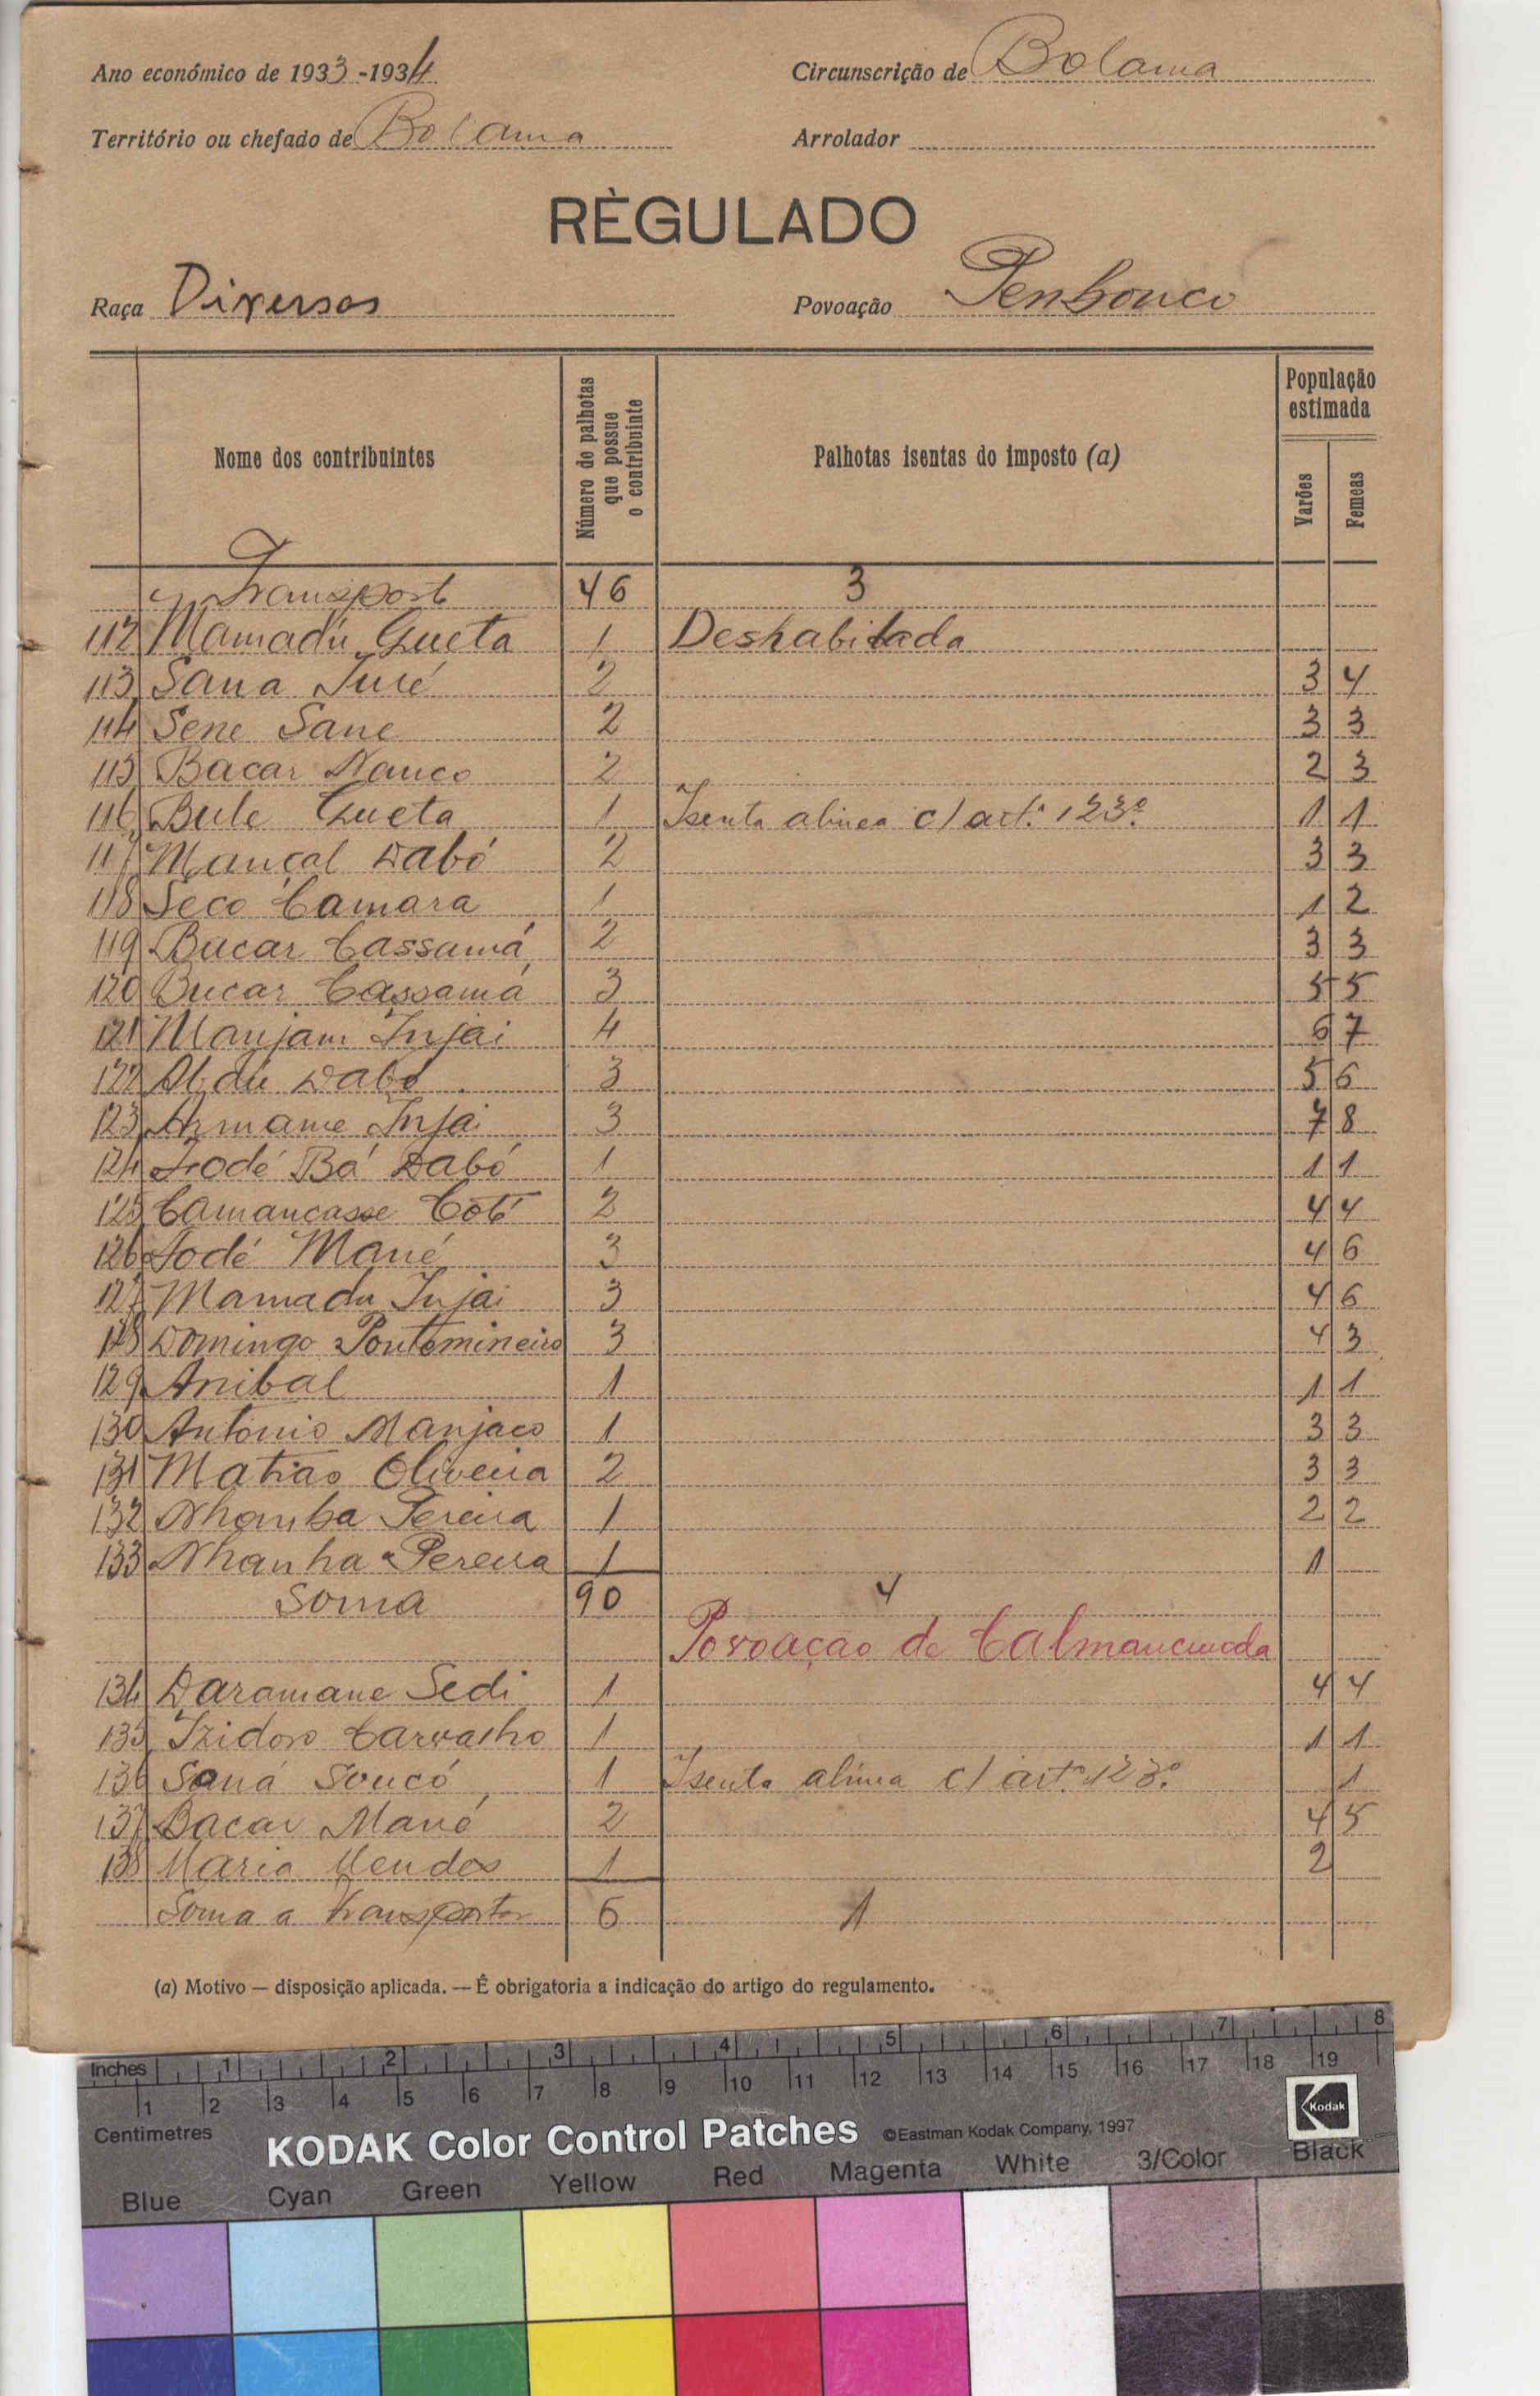 Ano económico de 1933-1934
Circunscrição de Bolama
Território ou chefado de Bolama
Arrolador
RÈGULADO
Raça Diversos
Povoação
Nome dos contribuintes
Número de palhotas que possue o contribuinte
Palhotas isentas do imposto (a)
População estimada
Varões
Femeas
Transport 46 3
112 Mamadú Gueta 1 Deshabitada
113 Sana Turé 2 3 4
114 Sene Sane 2 3 3
115 Bacar Nanco 2 2 3
116 Bule Gueta 1 Isenta alinea c/ art.º 123º 1 1
117 Mançal Dabó 2 3 3
118 Seco Camara 1 1 2
119 Bucar Cassamá 2 3 3
120 Bucar Cassamá 3 5 5
121 Manjam Injai 4 6 7
122 Abdu Dabó 3 5 6
123 Armame Injai 3 7 8
124 Fodé Bá Dabó 1 1 1
125 Camancasse Coté 2 4 4
126 Fodé Mané 3 4 6
127 Mamadu Injai 3 4 6
128 Domingo Pontomineiro 3 4 3
129 Anibal 1 1 1
130 Antonio Manjaco 1 3 3
131 Matias Oliveira 2 3 3
132 Nhamba Pereira 1 2 2
133 Nhanha Pereira 1 1
Soma 90 4
Povoação de
134 Daramane Sedi 1 4 4
135 Izidoro Carvalho 1 1 1
136 Saná Soncó 1 Isenta alínea c/ art.º 123.º 1
137 Bacar Mané 2 4 5
138 Maria Mendes 1 2
Soma a transportar 6 1
(a) Motivo — disposição aplicada. — É obrigatoria a indicação do artigo do regulamento.
Inches 1 2 3 4 5 6 7 8
1 2 3 4 5 6 7 8 9 10 11 12 13 14 15 16 17 18 19
Centimetres
KODAK Color Control Patches ©Eastman Kodak Company, 1997
Kodak
Blue Cyan Green Yellow Red Magenta White 3/Color Black